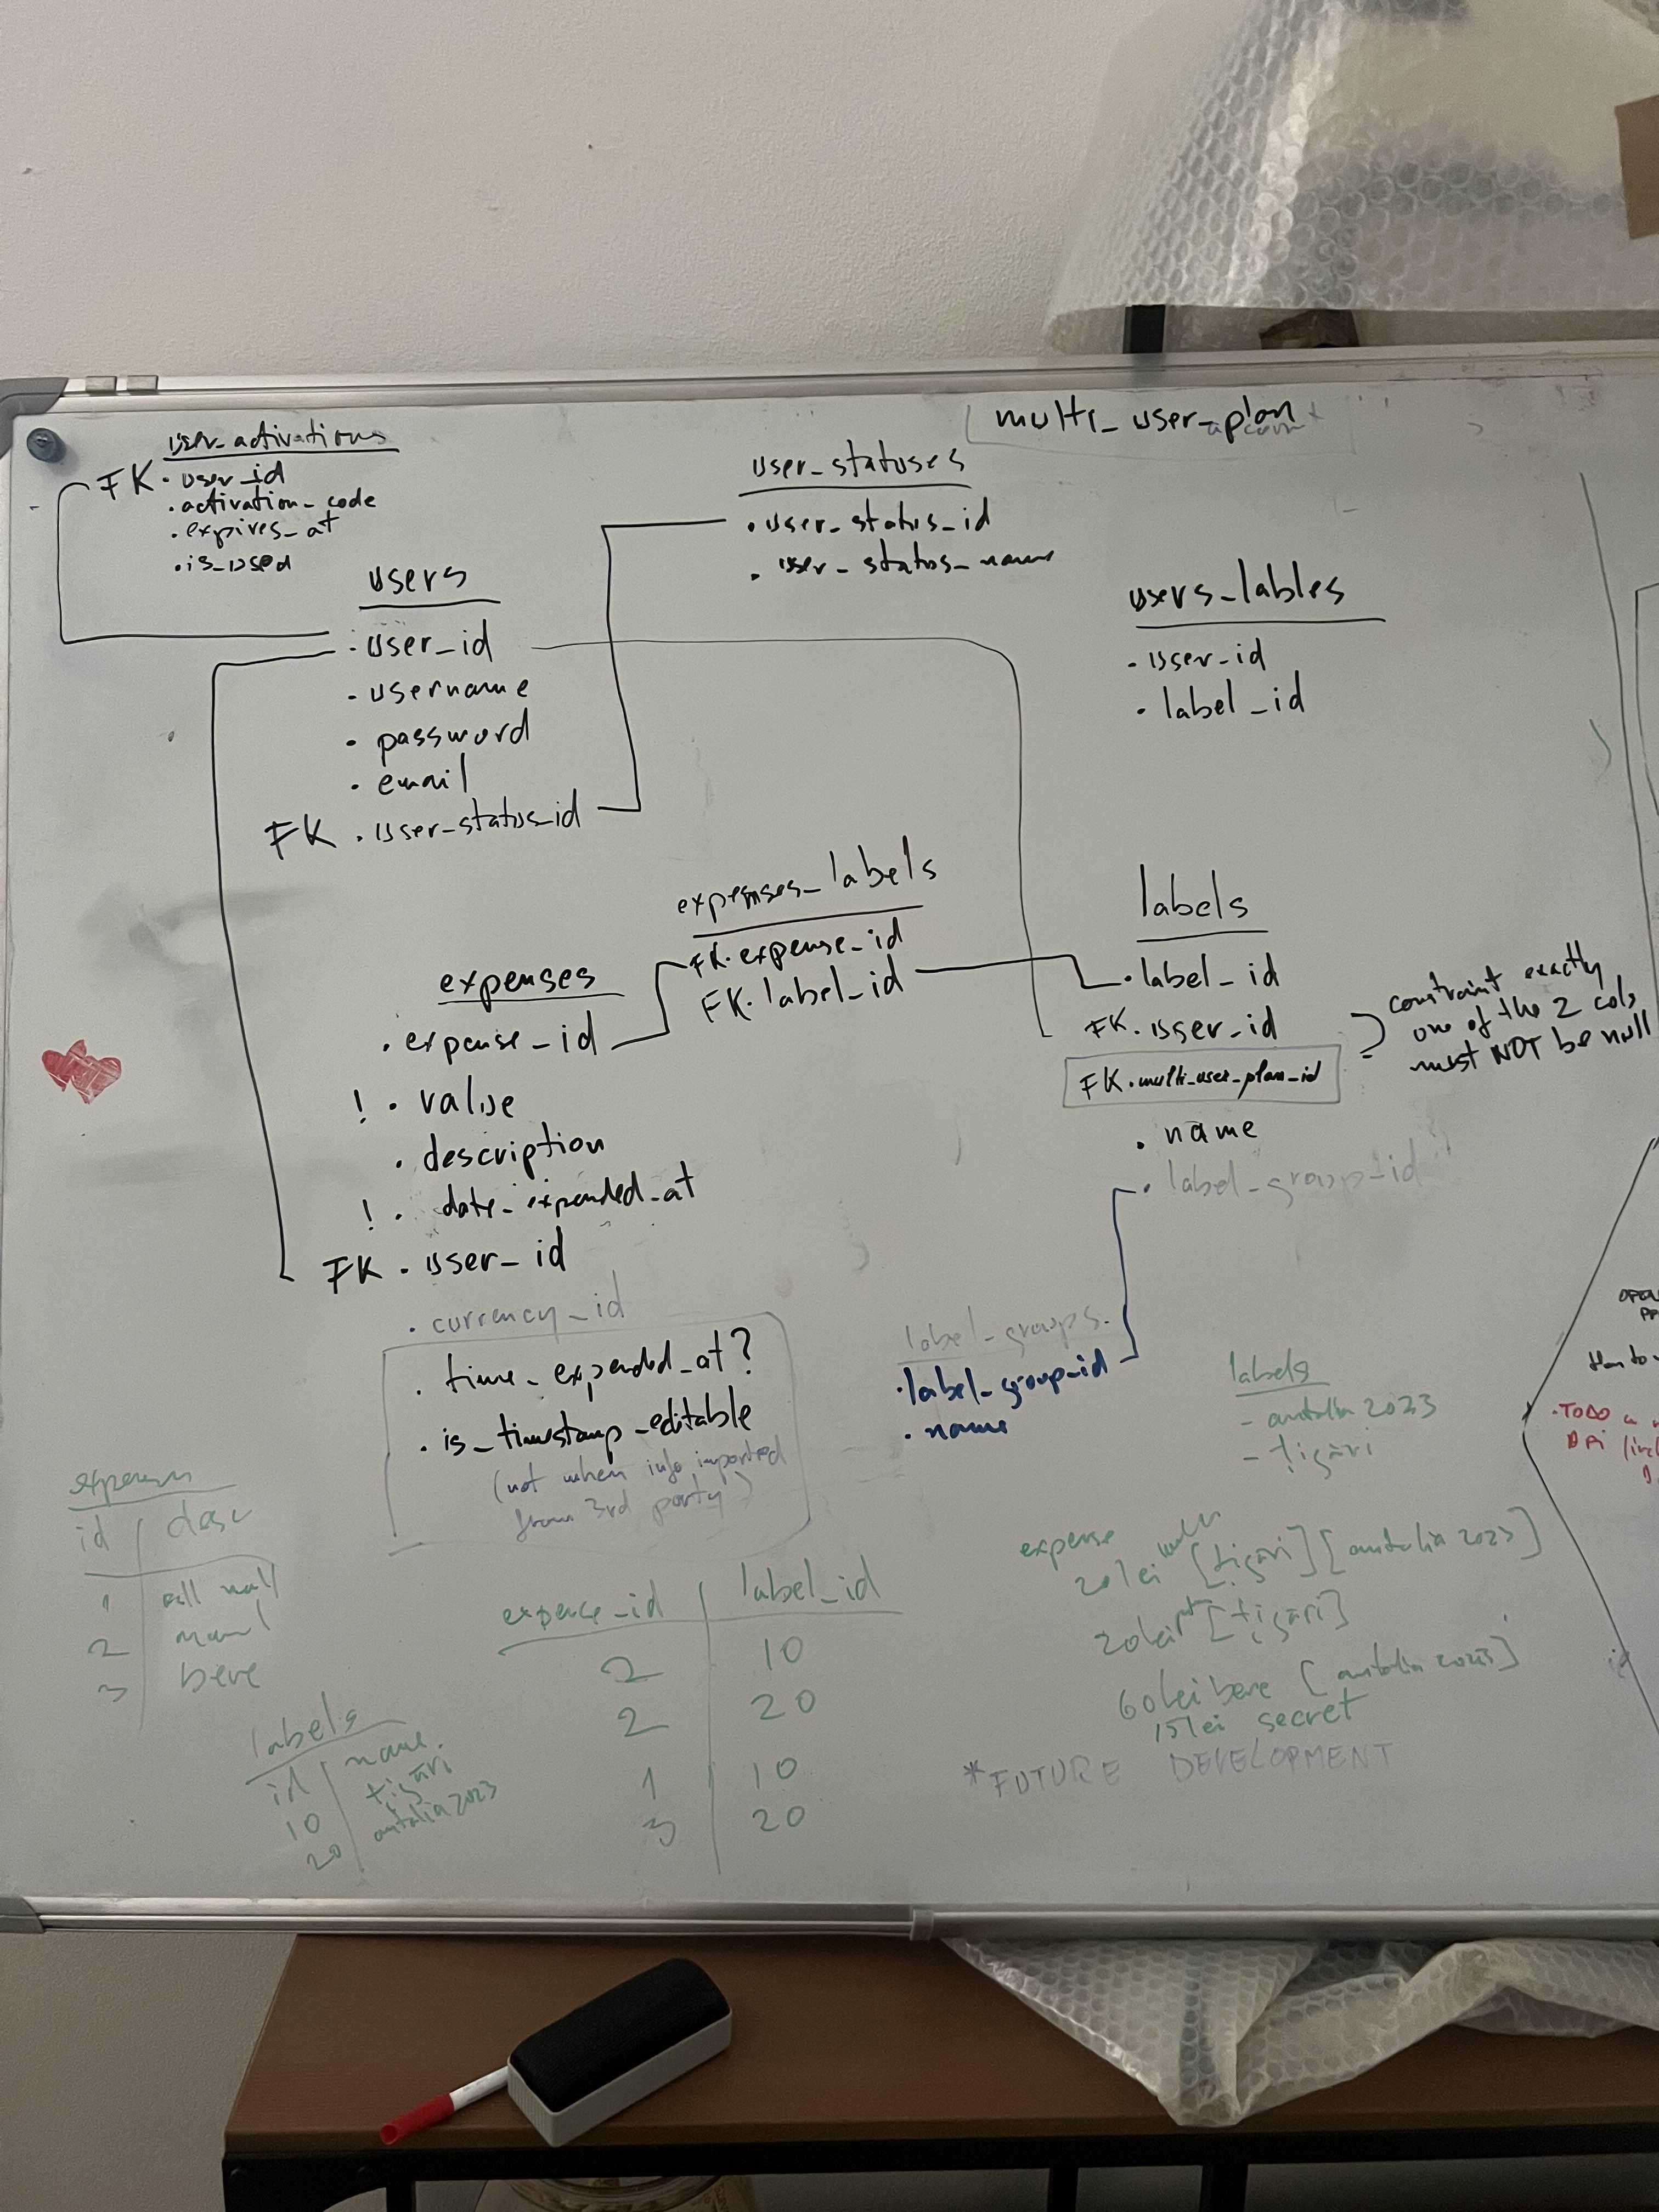 multi_user_plan
user_activations
FK. user_id
. activation_code
. expires_at
. is_used
user_statuses
. user_status_id
. user_status_name
users
. user_id
. username
. password
. email
FK . user_status_id
users_lables
. user_id
. label_id
expenses_labels
FK. expense_id
FK. label_id
labels
. label_id
FK. user_id
FK. multi_user_plan_id
. name
. label_group_id
constraint exactly
one of the 2 cols
must NOT be null
expenses
. expense_id
! . value
. description
! . date_expended_at
FK . user_id
. currency_id
. time_expended_at?
. is_timestamp_editable
(not when info imported
from 3rd party)
label_groups
. label_group_id
. name
labels
- antalia 2023
- țigări
id desc
1
2
3 bere
labels
id name
10 țigări
20 antalia 2023
expense_id label_id
2 10
2 20
1 10
3 20
expense
20 lei [țigări] [antalia 2023]
20 lei [țigări]
60 lei bere [antalia 2023]
15 lei secret
*FUTURE DEVELOPMENT
TODO